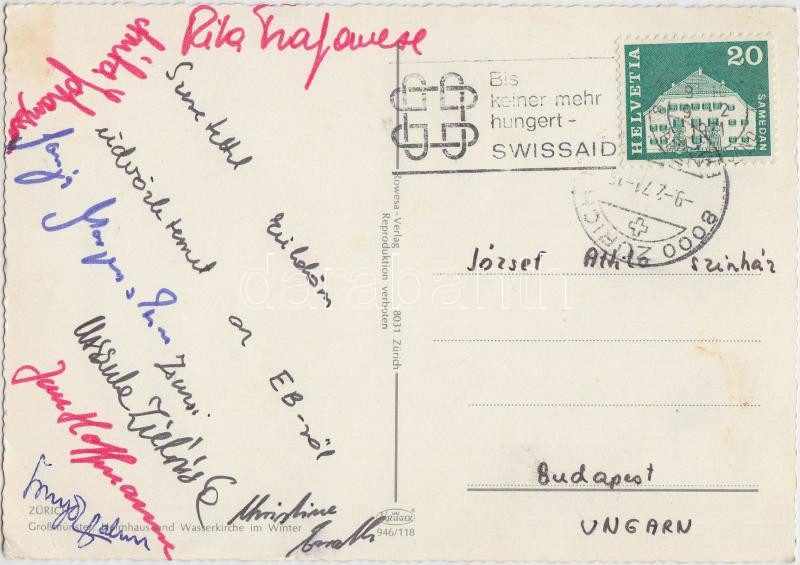 Rita Trapanese
Anita Johansson
Szeretettel
küldöm
üdvözletemet
az EB-ről
Zsuzsi
Jan Hoffmann
Christine
Errath
ZÜRICH
Großmünster, Helmhaus und Wasserkirche im Winter
KRÜGER
946/118
Rowesa-Verlag 8031 Zürich
Reproduktion verboten
Bis
keiner mehr
hungert -
SWISSAID
HELVETIA
20
SAMEDAN
8000 ZÜRICH
-9-2.71-15
József Attila színház
Budapest
UNGARN
darabanth